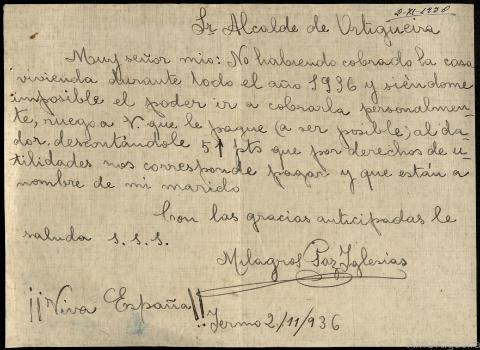 2-XI-1936
Sr Alcalde de Ortigueira
Muy señor mio: No habiendo cobrado la casa
vivienda durante todo el año 1936 y siéndome
imposible el poder ir a cobrarla personalmen-
te, ruego a V. que le pague (a ser posible) al da-
dor, descontándole 51 pts que por derechos de u-
tilidades nos corresponde pagar y que están a
nombre de mi marido
Con las gracias anticipadas le
saluda s.s.s.
Milagros Paz Iglesias
¡¡Viva España!!
Yermo 2/11/936